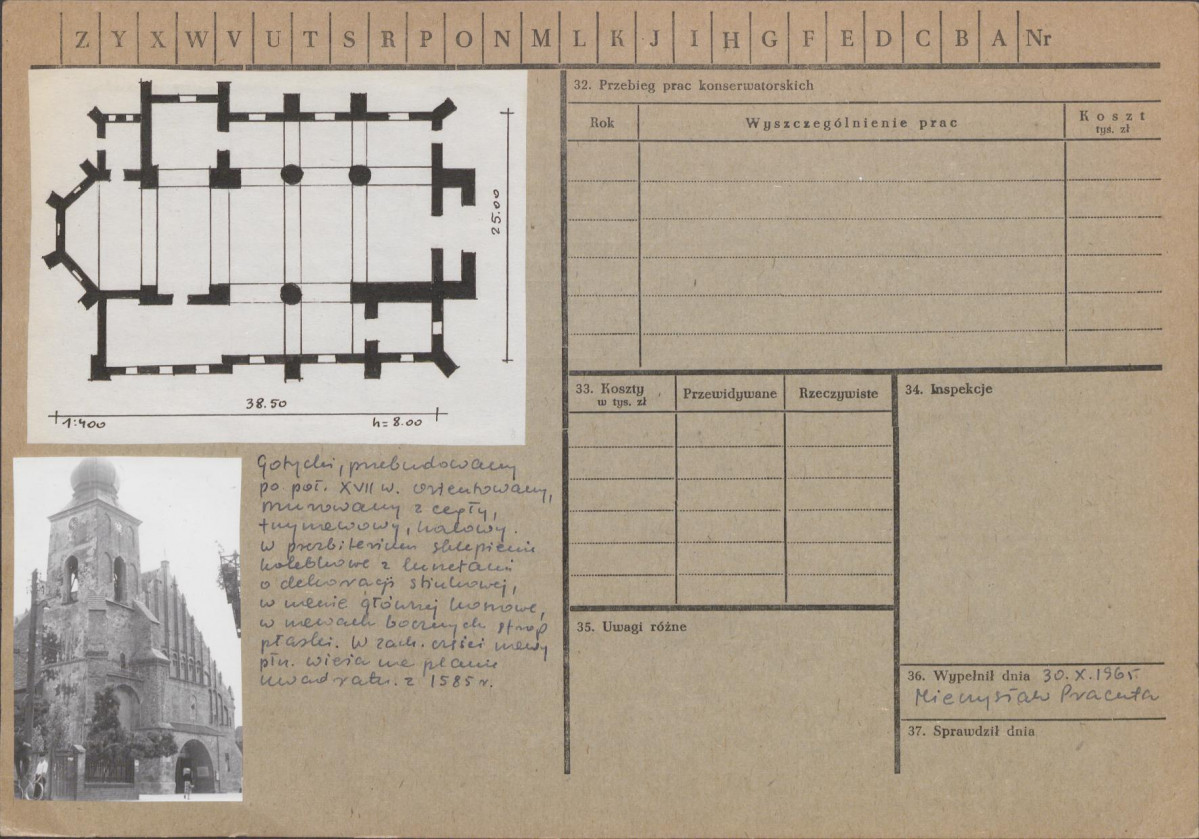 Z Y X W V U T S R P O N M L K J I H G F E D C B A Nr
25.00
38.50
1:400 h=8.00
Gotycki, przebudowany
po poł. XVII w. orientowany,
murowany z cegły,
trzynawowy, halowy.
W prezbiterium sklepienie
kolebkowe z lunetami
o dekoracji stiukowej,
w nawie głównej
w nawach bocznych strop
płaski. W zach. części nawy
płn. wieża na planie
kwadratu. z 1585 r.
32. Przebieg prac konserwatorskich
Rok Wyszczególnienie prac Koszt
tyś. zł
33. Koszty Przewidywane Rzeczywiste
w tys. zł
34. Inspekcje
35. Uwagi różne
36. Wypełnił dnia 30.X.1965
Mieczysław
37. Sprawdził dnia